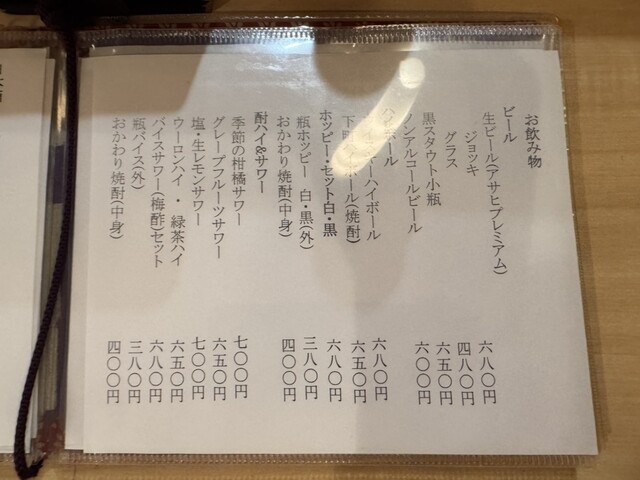 お飲み物
ビール
生ビール(アサヒプレミアム)
ジョッキ 六八〇円
グラス 四八〇円
黒スタウト小瓶 六五〇円
ノンアルコールビール 六〇〇円
ハイボール
ーハイボール 六八〇円
下町ハイボール(焼酎) 六五〇円
ホッピー・セット白・黒 六八〇円
瓶ホッピー 白・黒(外) 三八〇円
おかわり焼酎(中身) 四〇〇円
酎ハイ&サワー
季節の柑橘サワー 七〇〇円
グレープフルーツサワー 六五〇円
塩・生レモンサワー 七〇〇円
ウーロンハイ・緑茶ハイ 六五〇円
バイスサワー(梅酢)セット 六八〇円
瓶バイス(外) 三八〇円
おかわり焼酎(中身) 四〇〇円